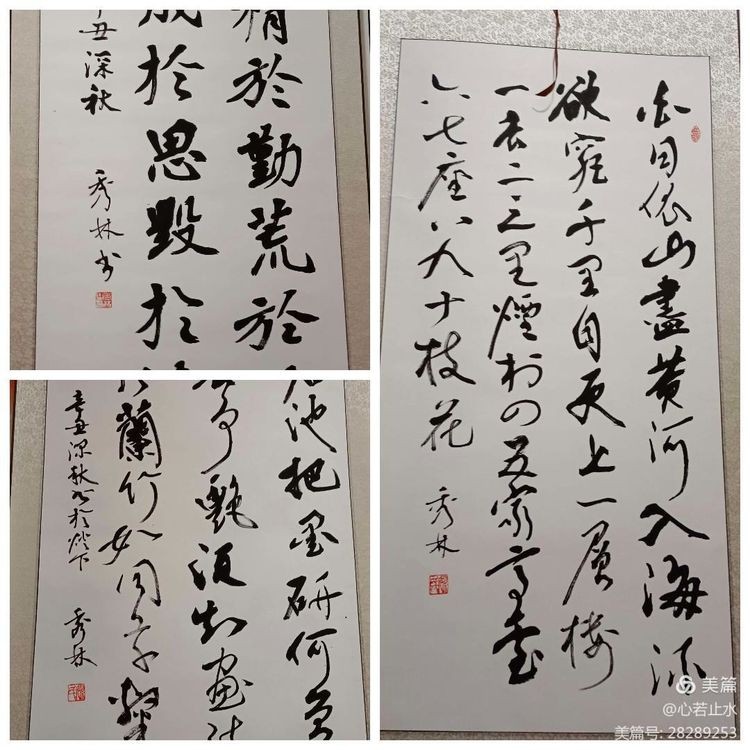 精於勤荒於
成於思毁於
丑深秋
秀林书
池把墨研何
画
蘭竹如同字
辛丑深秋书於灯下
秀林
白日依山盡黄河入海流
欲窮千里目更上一層楼
一去二三里煙村四五家亭臺
六七座八九十枝花
秀林
美篇
@心若止水
美篇号: 28289253